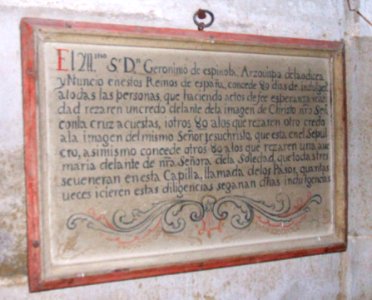 El Ill.mo S.r D.n Geronimo de espinola, Arzouispa de laodicea
y Nuncio en estos Reinos de españa, concede 80 dias de indulgen
a todas las personas, que haciendo actos de fee esperanza
dad rezaren un credo delante de la imagen de Christo nro Señ
con la cruz acuestas, iotros 80 alos que rezaren otro credo
a la imagen del mismo Señor Jesuchristo, que esta en el Sepul
cro, asimismo concede otros 80 a los que rezaren una aue
maria delante de nra. Señora de la Soledad, que todas tres
se ueneran en esta Capilla, llamada de los Pasos, quantas
ueces icieren estas diligencias se ganan dhas indulgencias